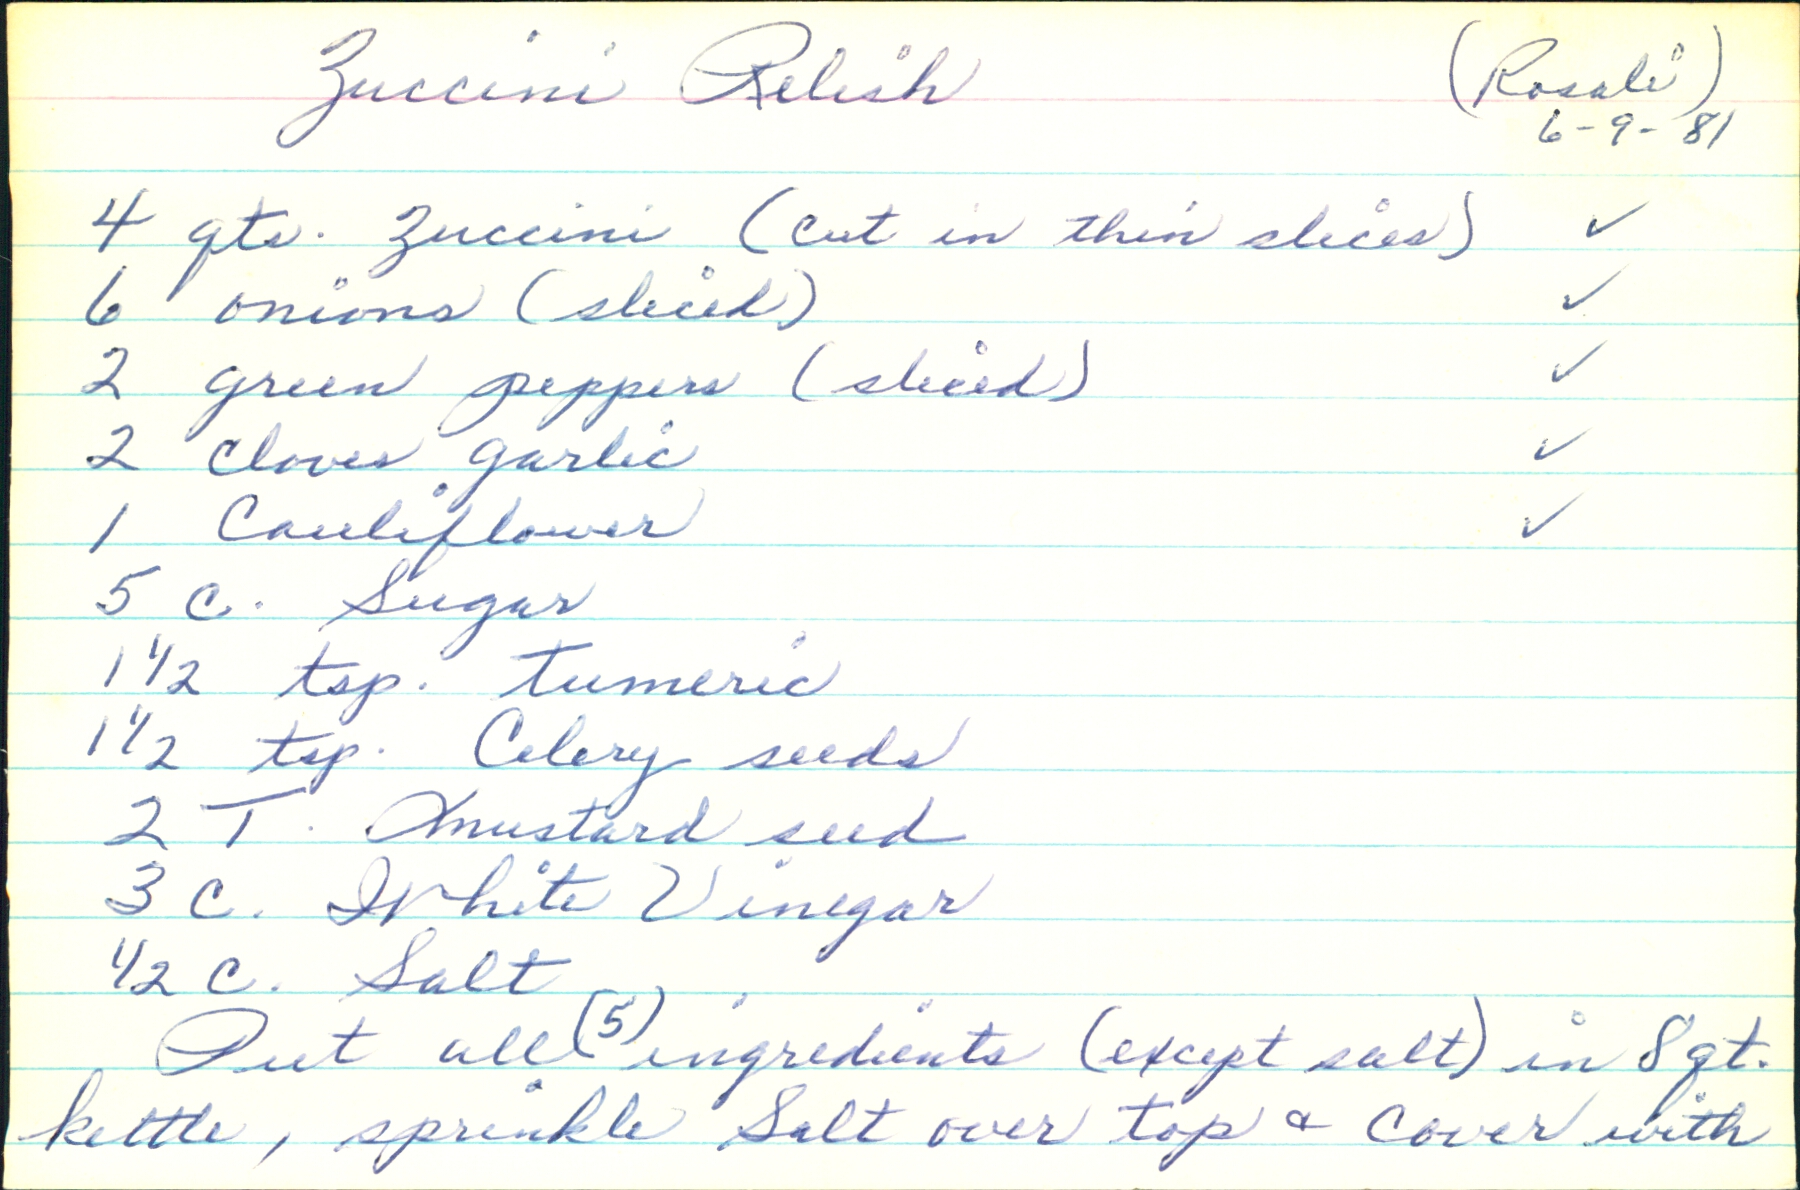 Zuccini Relish (Rosali)
6-9-81
4 qts. Zuccini (cut in thin slices) ✓
6 onions (sliced) ✓
2 green peppers (sliced) ✓
2 cloves garlic ✓
1 Cauliflower ✓
5 c. Sugar
1 1/2 tsp. tumeric
1 1/2 tsp. Celery seeds
2 T. Mustard seed
3 c. White Vinegar
1/2 c. Salt
Put all (5) ingredients (except salt) in 8 qt.
kettle, sprinkle Salt over top & cover with